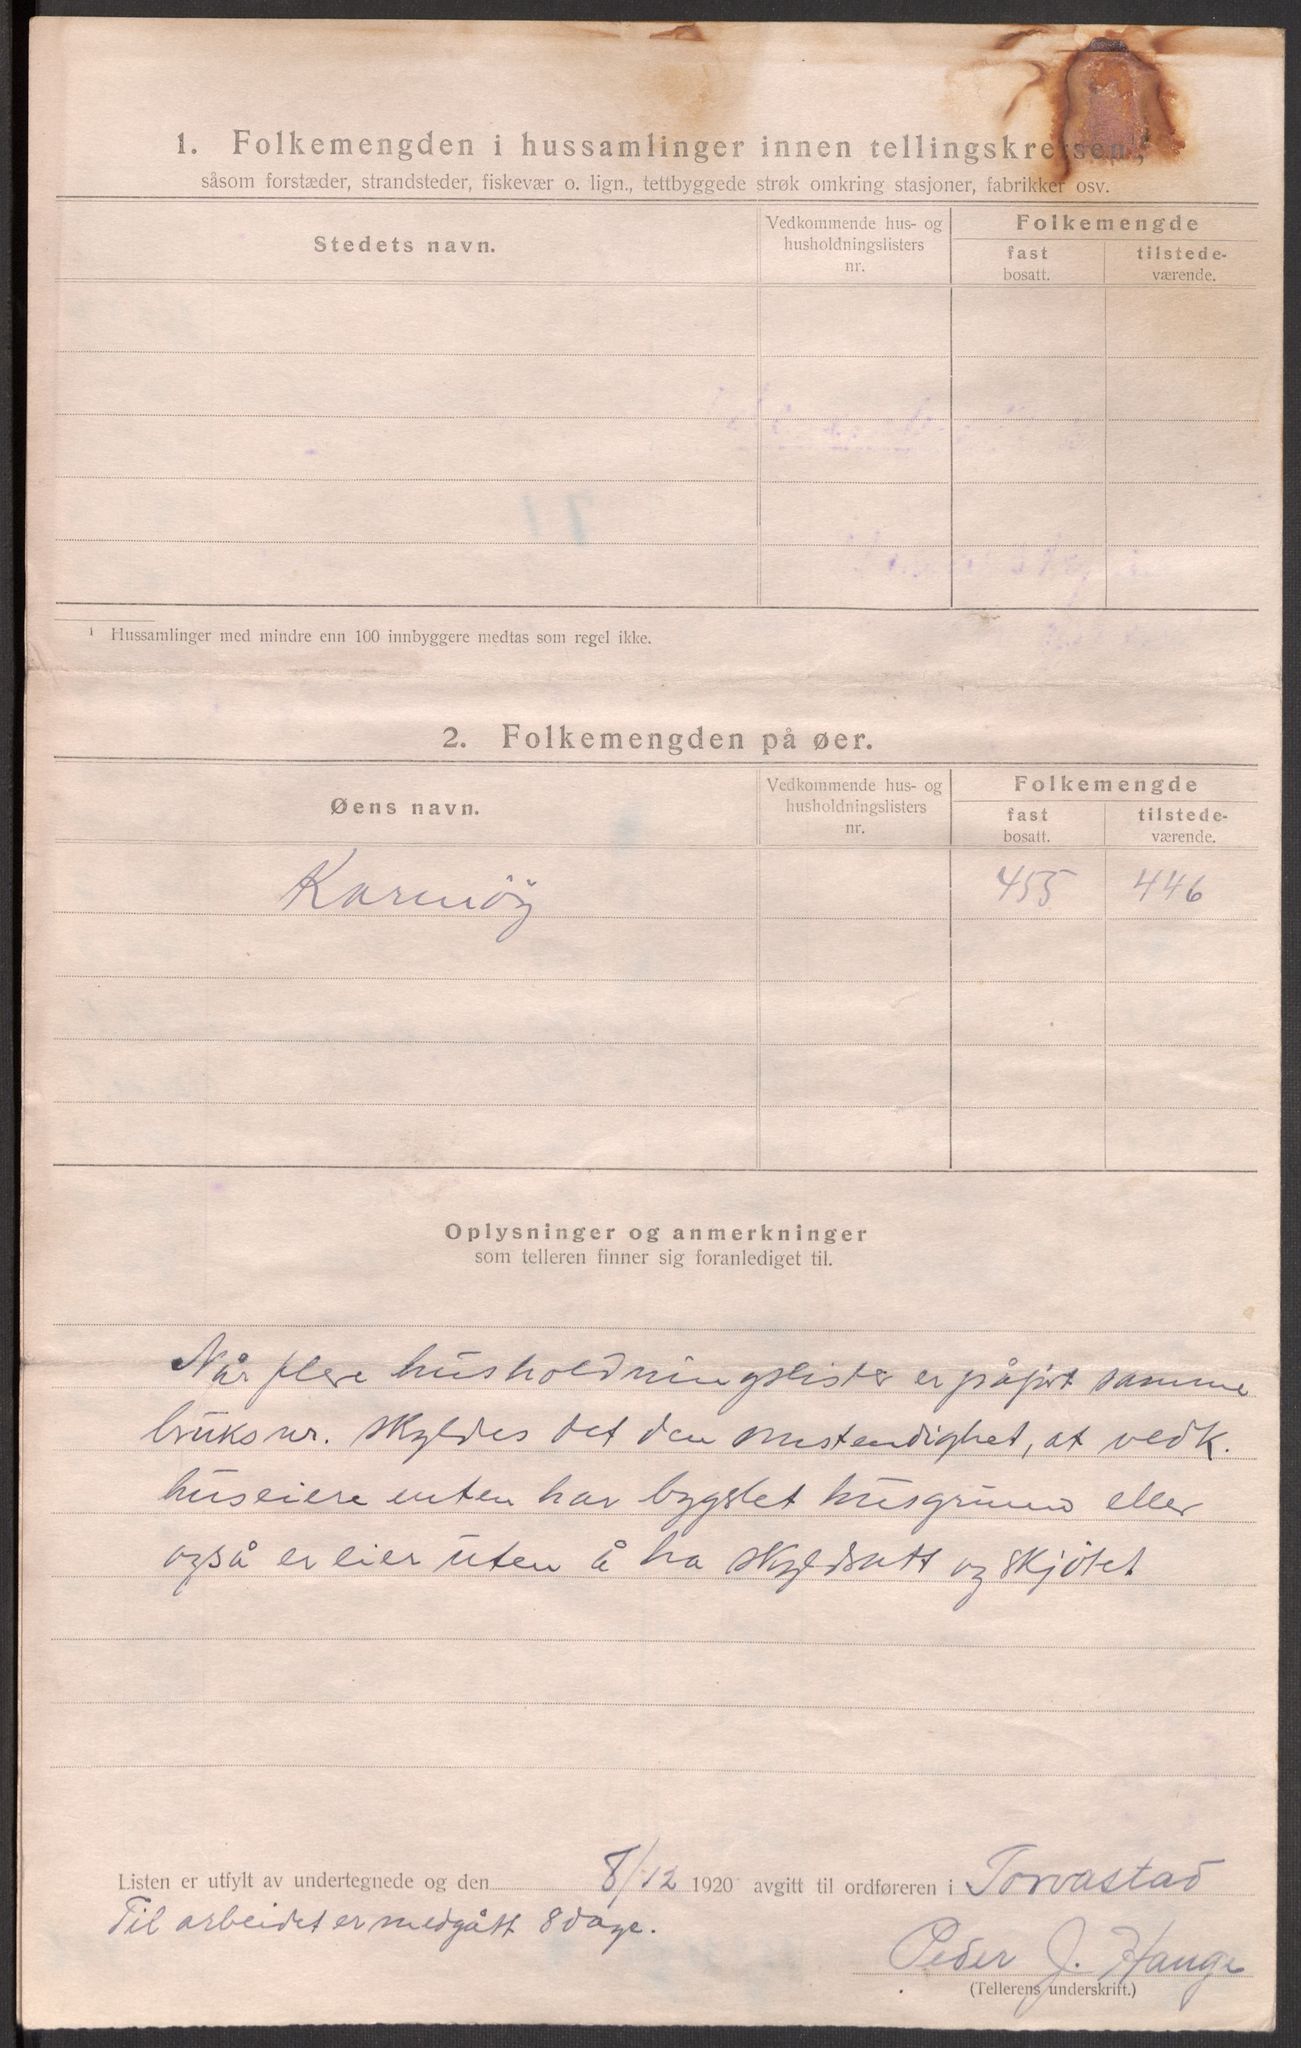 1. Folkemengden i hussamlinger innen tellingskretsen,¹
såsom forstæder, strandsteder, fiskevær o. lign., tettbyggede strøk omkring stasjoner, fabrikker osv.
Stedets navn.
Vedkommende hus- og
husholdningslisters
nr.
Folkemengde
fast
bosatt.
tilstede-
værende.
¹ Hussamlinger med mindre enn 100 innbyggere medtas som regel ikke.
2. Folkemengden på øer.
Øens navn.
Vedkommende hus- og
husholdningslisters
nr.
Folkemengde
fast
bosatt.
tilstede-
værende.
Karmöy 455 446
Oplysninger og anmerkninger
som telleren finner sig foranlediget til.
Når flere husholdningslister er påført samme
bruksnr. skyldes det den omstendighet, at vedk.
huseiere enten har bygslet husgrund eller
også er eier uten å ha skyldsatt og skjötet
Listen er utfylt av undertegnede og den 8/12 1920 avgitt til ordføreren i Torvastad
Til arbeidet er medgått 8 dage.
Peder J. Hauge
(Tellerens underskrift.)